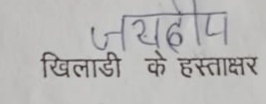 जयदीप
खिलाडी के हस्ताक्षर